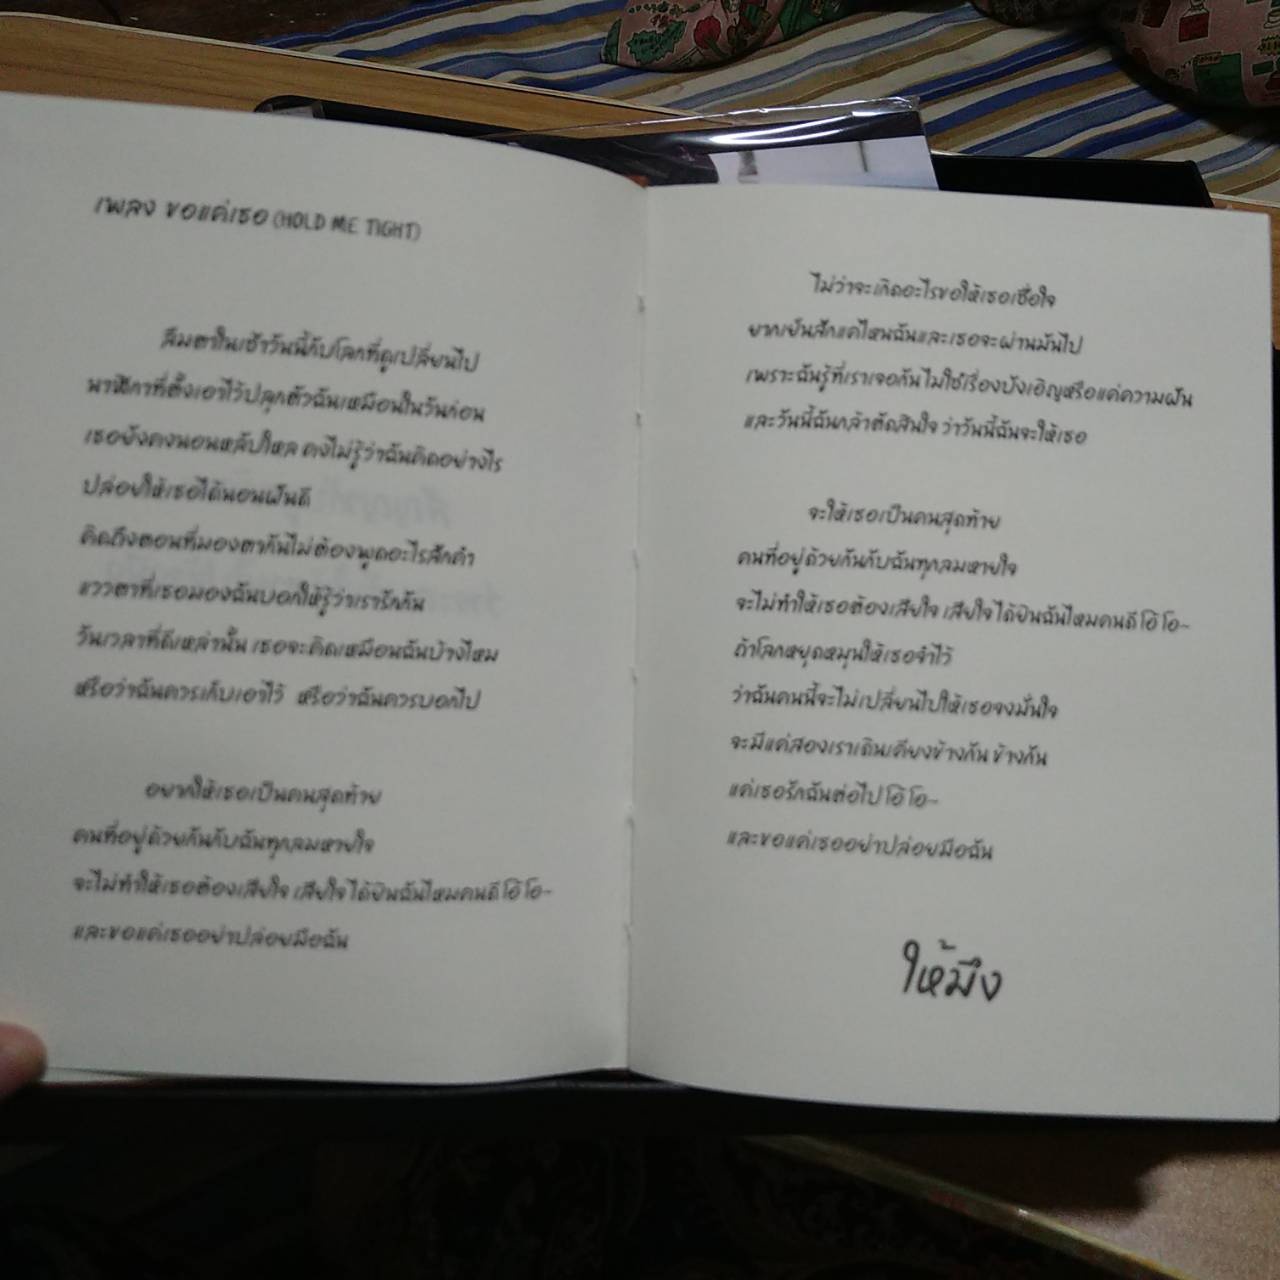 เพลง ขอแค่เธอ (HOLD ME TIGHT)
ลืมตาในเช้าวันนี้กับโลกที่ดูเปลี่ยนไป
นาฬิกาที่ตั้งเอาไว้ปลุกตัวฉันเหมือนในวันก่อน
เธอยังคงนอนหลับใหล คงไม่รู้ว่าฉันคิดอย่างไร
ปล่อยให้เธอได้นอนฝันดี
คิดถึงตอนที่มองตากันไม่ต้องพูดอะไรสักคำ
แววตาที่เธอมองฉันบอกให้รู้ว่าเรารักกัน
วันเวลาที่ดีเหล่านั้น เธอจะคิดเหมือนฉันบ้างไหม
หรือว่าฉันควรเก็บเอาไว้ หรือว่าฉันควรบอกไป
อยากให้เธอเป็นคนสุดท้าย
คนที่อยู่ด้วยกันกับฉันทุกลมหายใจ
จะไม่ทำให้เธอต้องเสียใจ เสียใจ ได้ยินฉันไหมคนดี โอ้ โอ~
และขอแค่เธออย่าปล่อยมือฉัน
ไม่ว่าจะเกิดอะไรขอให้เธอเชื่อใจ
ยากเย็นสักแค่ไหนฉันและเธอจะผ่านมันไป
เพราะฉันรู้ที่เราเจอกันไม่ใช่เรื่องบังเอิญหรือแค่ความฝัน
และวันนี้ฉันกล้าตัดสินใจ ว่าวันนี้ฉันจะให้เธอ
จะให้เธอเป็นคนสุดท้าย
คนที่อยู่ด้วยกันกับฉันทุกลมหายใจ
จะไม่ทำให้เธอต้องเสียใจ เสียใจ ได้ยินฉันไหมคนดี โอ้ โอ~
ถ้าโลกหยุดหมุนให้เธอจำไว้
ว่าฉันคนนี้จะไม่เปลี่ยนไปให้เธอจงมั่นใจ
จะมีแค่สองเราเดินเคียงข้างกัน ข้างกัน
แค่เธอรักฉันต่อไป โอ้ โอ~
และขอแค่เธออย่าปล่อยมือฉัน
ให้มึง